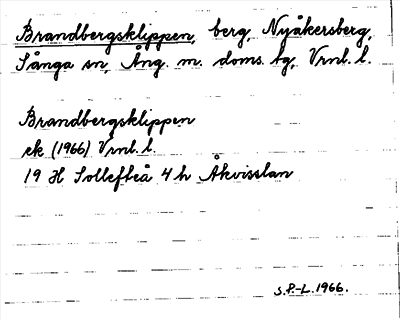 Brandbergsklippen, berg, Nyåkersberg,
Sånga sn, Ång. m. doms. tg, Vrnl. l.
Brandbergsklippen
ek (1966) Vrnl. l.
19 H Sollefteå 4 h Åkvisslan
S.P.-L. 1966.